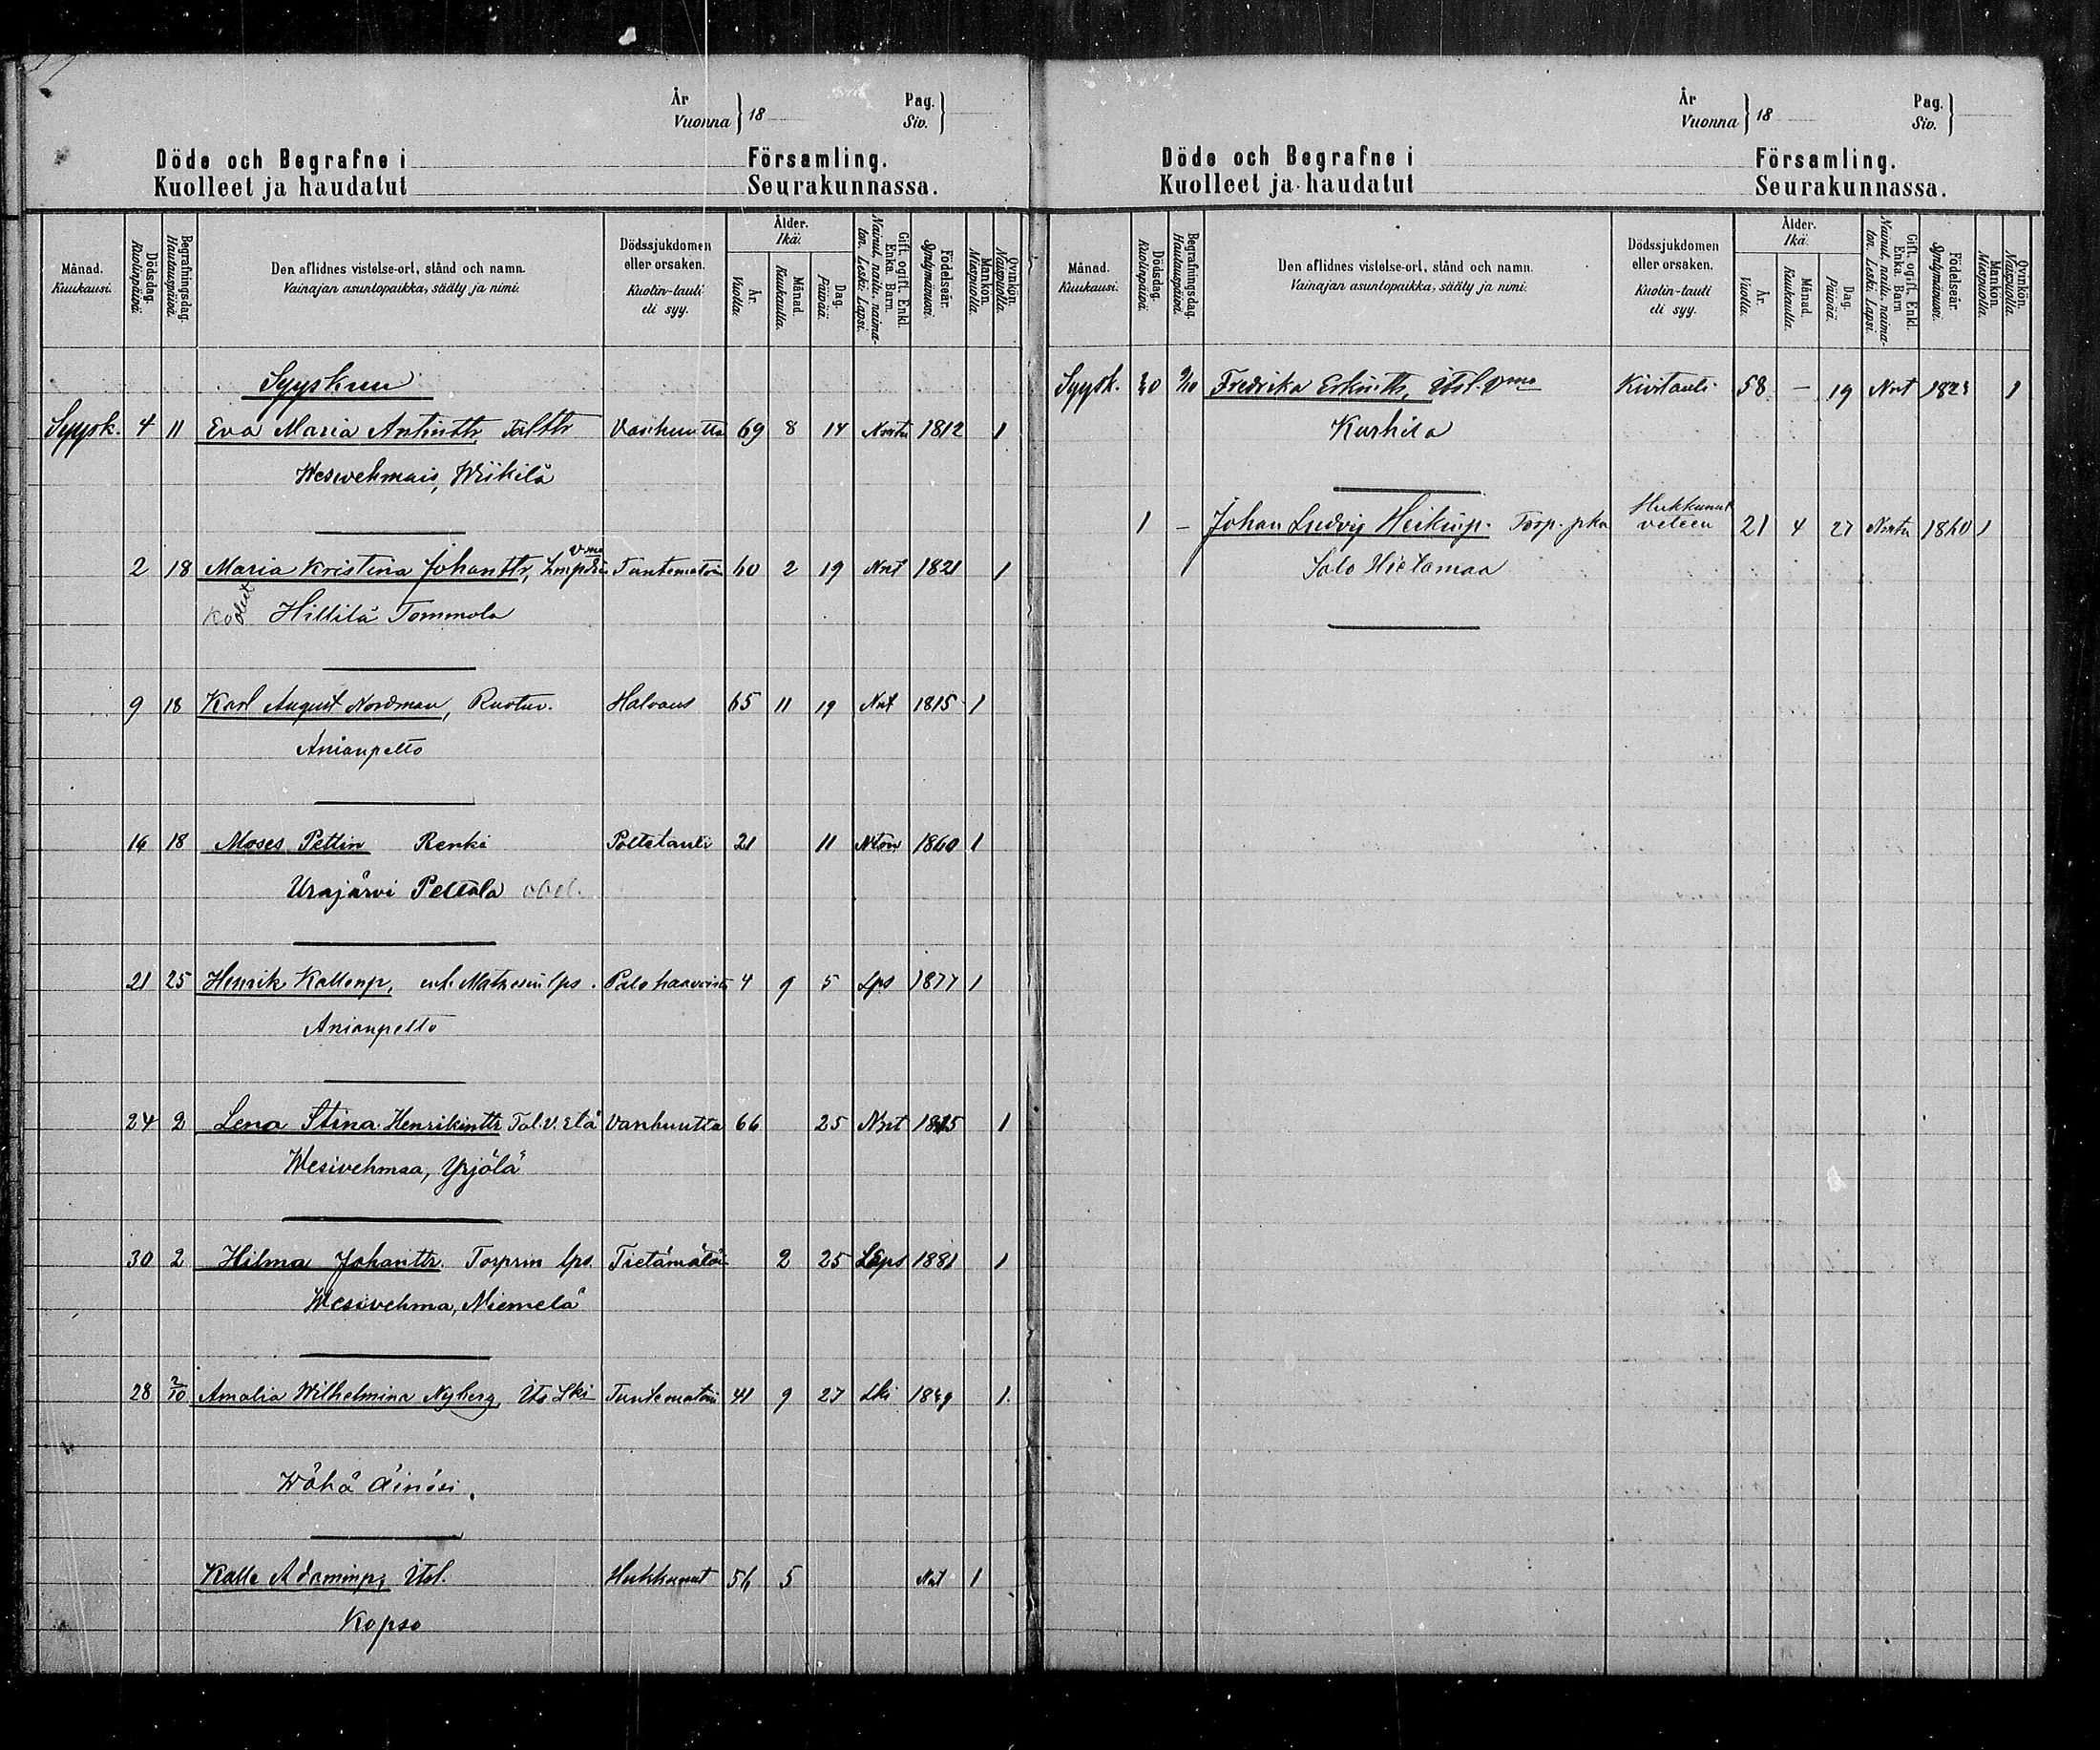 År
Vuonna } 18
Pag.
Siv. }
Döde och Begrafne i Församling.
Kuolleet ja haudatut Seurakunnassa.
Månad. Kuukausi.
Dödsdag. Kuolinpäivä.
Begrafningsdag. Hautauspäivä.
Den aflidnes vistelse-ort, stånd och namn.
Vainajan asuntopaikka, sääty ja nimi.
Dödssjukdomen eller orsaken.
Kuolin-tauti eli syy.
Ålder. Ikä.
År. Vuotta.
Månad. Kuukautta.
Dag. Päivää.
Gift, ogift. Enkl. Enka. Barn
Nainut, naitu, naimaton. Leski. Lapsi.
Födelseår. Syntymävuosi.
Mankön. Miespuolia.
Qvinkön. Naispuolia.
Syyskuu
Syysk. 4 11 Eva Maria Antintr 69 8 14 1812 1
Wesivehmais, Wiikilä
2 18 Maria Kristina Johanttr, Tuntematoin 60 2 19 Nnt 1821 1
Hillilä Tommola
9 18 Karl August Nordman, Ruotuv. Halvaus 65 11 19 Nnt 1815 1
Anianpelto
16 18 Moses Pettin Renki Polttotauti 21 11 1860 1
Urajärvi Peltola
21 25 Henrik Kallenp. lps. 4 9 5 Lps 1877 1
Anianpelto
24 2 Lena Stina Henrikinttr Tal. V. Etä Vanhuutta 66 25 Nnt 1815 1
Wesivehmaa, Yrjölä
30 2 Hilma Johanttr. Torprin lps. Tietämätöin 2 25 Laps 1881 1
Wesivehma, Niemelä
28 2/10 Amalia Wilhelmina Nyberg, Its Lki Tuntematoin 41 9 27 Lki 1839 1.
Wähä Äiniöi.
Kalle Adaminp, Itsl. Hukkunut 56 5 Nnt 1
Kopso
År
Vuonna } 18
Pag.
Siv. }
Döde och Begrafne i Församling.
Kuolleet ja haudatut Seurakunnassa.
Månad. Kuukausi.
Dödsdag. Kuolinpäivä.
Begrafningsdag. Hautauspäivä.
Den aflidnes vistelse-ort, stånd och namn.
Vainajan asuntopaikka, sääty ja nimi.
Dödssjukdomen eller orsaken.
Kuolin-tauti eli syy.
Ålder. Ikä.
År. Vuotta.
Månad. Kuukautta.
Dag. Päivää.
Gift, ogift. Enkl. Enka. Barn
Nainut, naitu, naimaton. Leski. Lapsi.
Födelseår. Syntymävuosi.
Mankön. Miespuolia.
Qvinkön. Naispuolia.
Syysk. 30 9/10 Fredrika Erkintr, Itsl. Vmo Kivitauti 58 – 19 Nnt 1823 1
Kurhila
Hukkunut
1 – Johan Ludvig Heikinp. Torp. pka veteen 21 4 27 1860 1
Salo Hietamaa